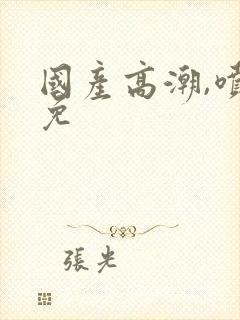 國產高潮,噴
免
張光